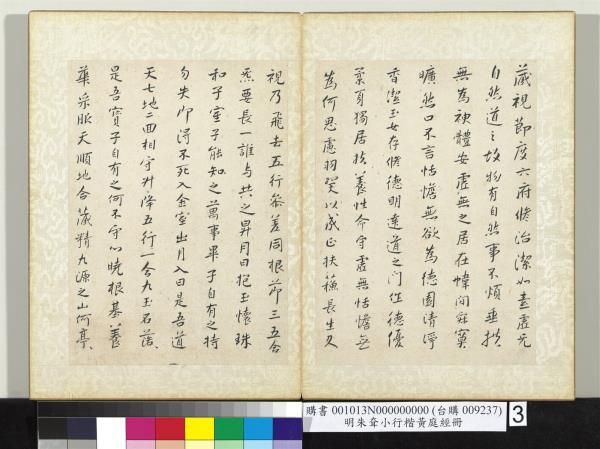 藏視節度六府修治潔如素虛无
自然道之故物有自然事不煩垂拱
無為神體安虛無之居在幃間寂寞
曠然口不言恬憺無欲為德園清淨
香潔玉女存修德明達道之門作德優
柔身獨居扶養性命守虛無恬憺無
為何思慮羽翼以成正扶蘓長生久
視乃飛去五行參差同根節三五合
炁要長一誰與共之昇月日抱玉懷珠
和子室子能知之萬事畢子自有之持
勿失即得不死入金室出月入日是吾道
天七地二回相守升降五行一合九玉石落、
是吾寶子自有之何不守心曉根基養
華采服天順地合藏精九源之山何亭、
購書 001013N000000000 (台購 009237)
明朱耷小行楷黃庭經冊
3